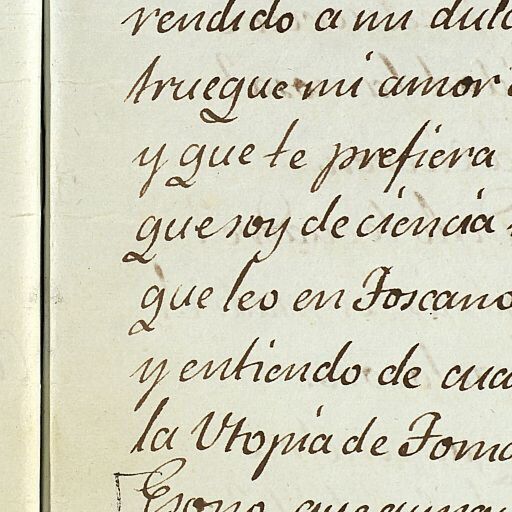 rendido a mi dulc
trueque mi amor
y que te prefiera
que soy de ciencia
que leo en Toscano
y entiendo de cua
la Utopia de Toma